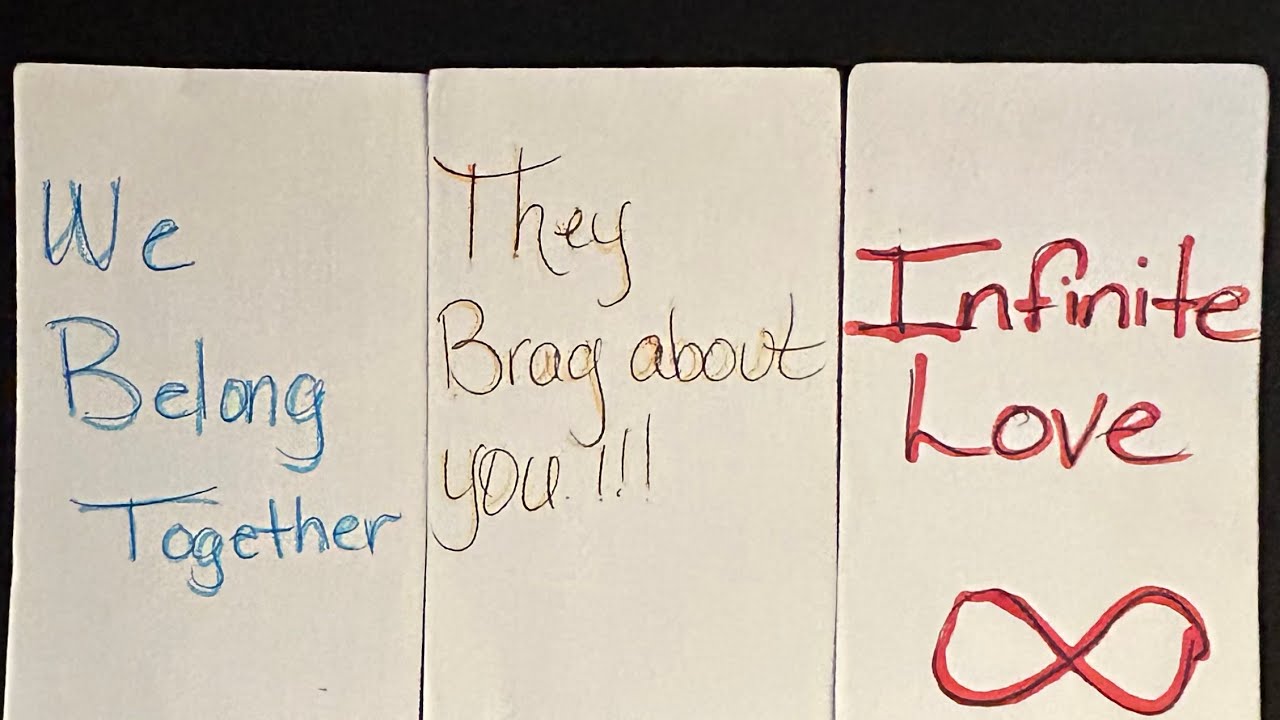 We
Belong
Together
They
Brag about
you!!!
Infinite
Love
∞